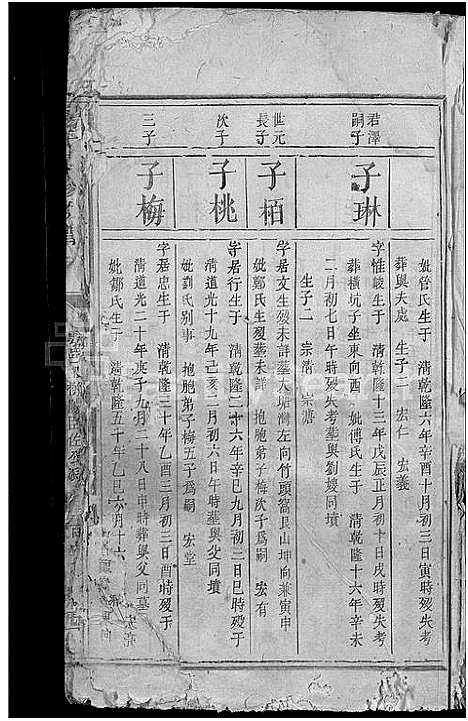 妣管氏生于 清乾隆六年辛酉十月初三日寅時殁失考
葬與夫處 生子二 宏仁 宏義
君澤嗣子
子琳
字惟峻生于 清乾隆十三年戊辰正月初十日戌時殁失考
葬橫坑子坐東向酉 妣傅氏生于 清乾隆十六年辛未
二月初七日午時殁失考葬與劉嫂同墳
生子二 宗清 宗瀗
世元長子
子栢
字居文生殁未詳葬大塘灣左向竹頭窩艮山坤向兼寅申
妣鄭氏生殁葬未詳 抱胞弟子梅次子為嗣 宏有
次子
子桃
字居行生于 清乾隆二十六年辛巳九月初二日巳時殁于
清道光十九年己亥二月初六日午時葬與父同墳
妣劉氏別事 抱胞弟子梅五子為嗣 宏堂
三子
子梅
字居忠生于 清乾隆三十年乙酉三月初三日酉時殁于
清道光二十年庚子九月二十八日申時葬與父同墓
妣鄒氏生于 清乾隆五十年乙巳六月十六